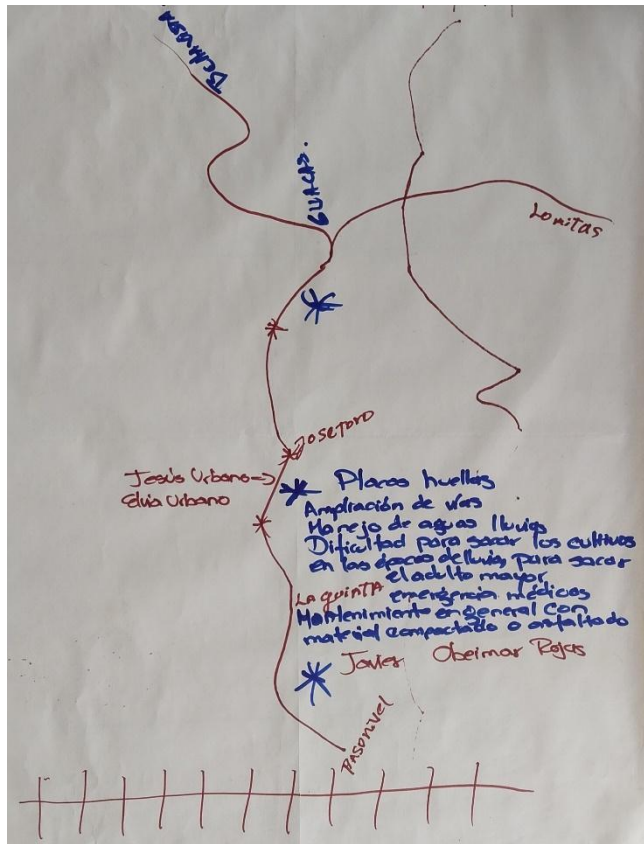 Bellavista
GUACAS.
Lomitas
Jose Toro
Jesús Urbano →
Elvia Urbano
Placas huellas
Ampliación de vías
Manejo de aguas lluvias
Dificultad para sacar los cultivos
en las épocas de lluvia, para sacar
el adulto mayor,
La quinta
emergencia médicas
Mantenimiento en general con
material compactado o asfaltado
Javier Obeimar Rojas
Pasonivel